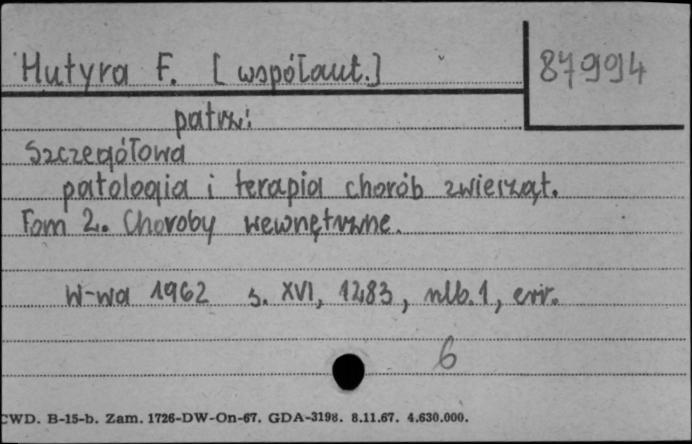 Hutyra F. [współaut.]
87994
patrz:
Szczegółowa
patologia i terapia chorób zwierząt.
Tom 2. Choroby wewnętrzne.
W-wa 1962 s. XVI, 1283, nlb. 1, err.
6
CWD. B-15-b. Zam. 1726-DW-On-67. GDA-3198. 8.11.67. 4.630.000.